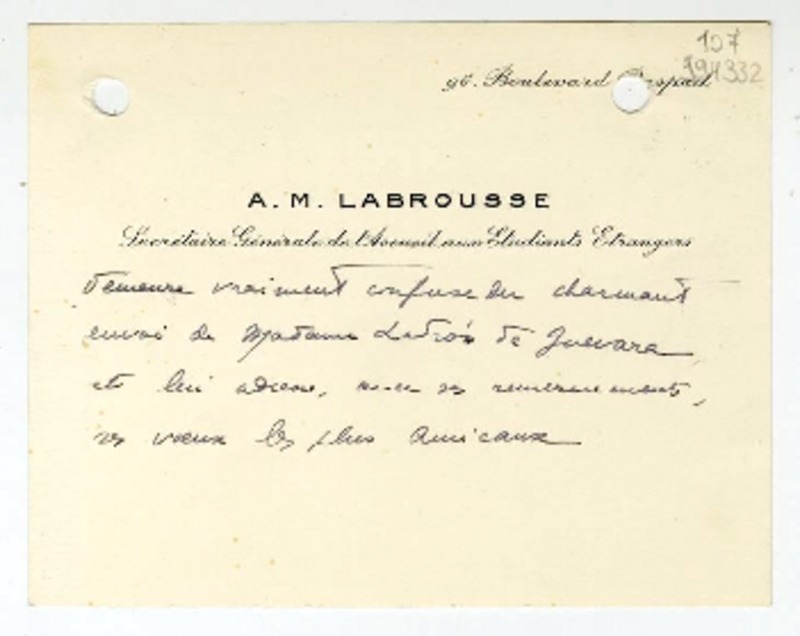 107
194332
96. Boulevard Raspail
A. M. LABROUSSE
Secrétaire Générale de l'Accueil aux Etudiants Etrangers
demeure vraiment confuse du charmant
envoi de Madame Ladrón de Guevara
et lui adresse, avec ses remerciements,
ses vœux les plus amicaux